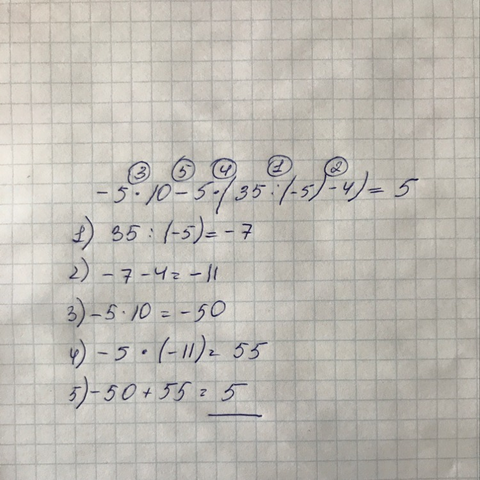 ③ ⑤ ④ ① ②
-5·10-5·(35:(-5)-4)=5
1) 35:(-5)=-7
2) -7-4=-11
3) -5·10=-50
4) -5·(-11)=55
5) -50+55=5